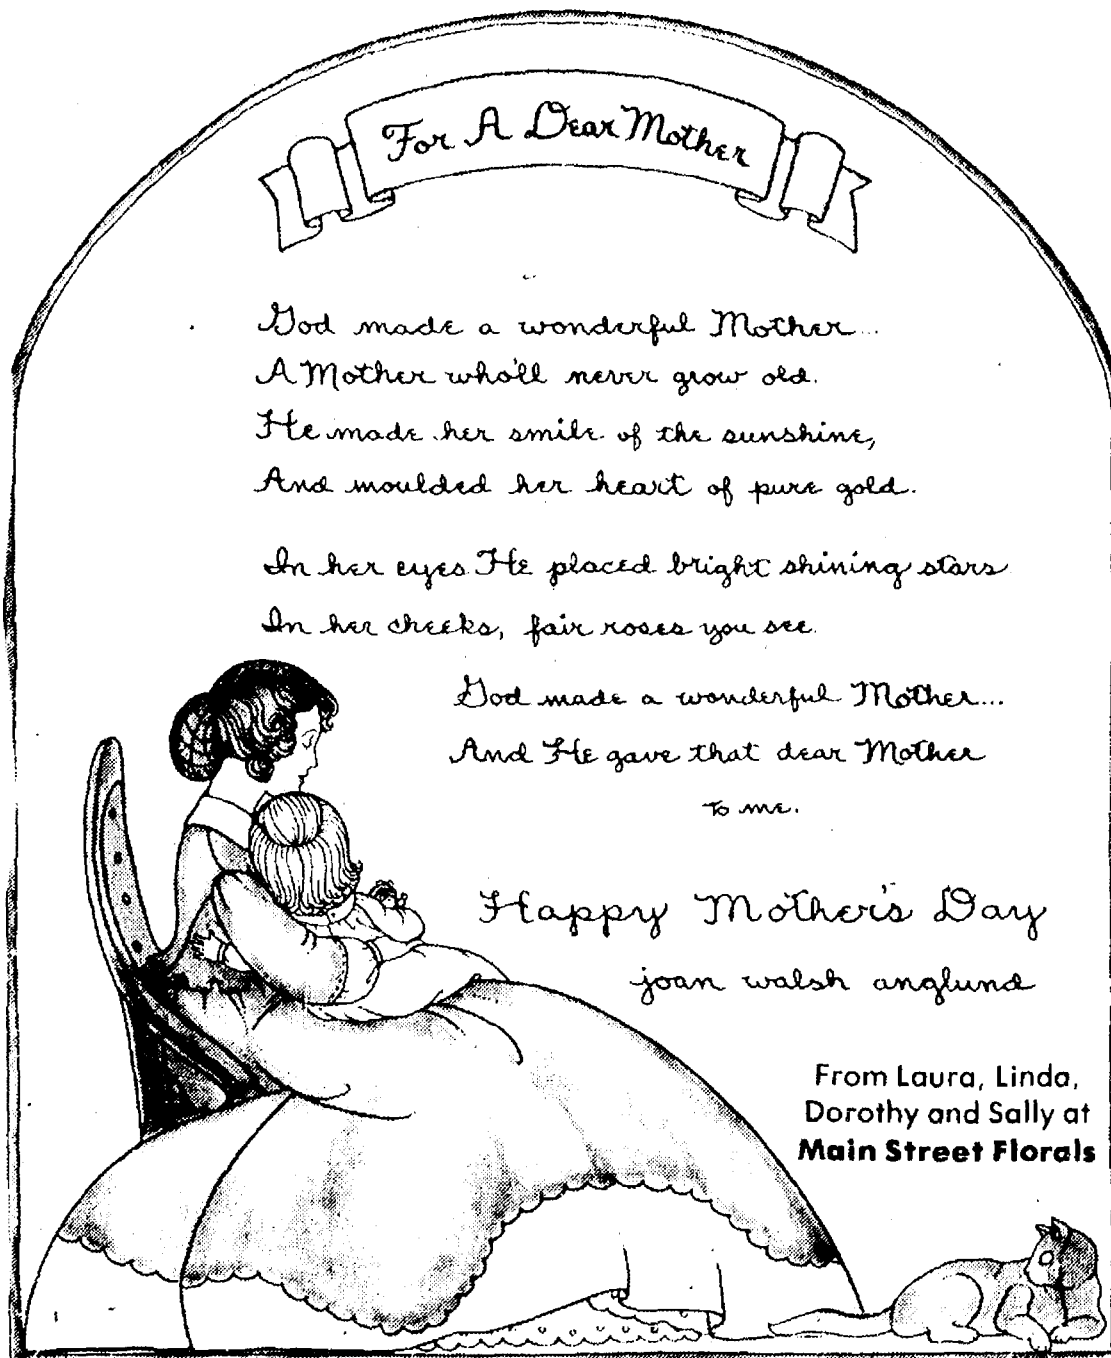 For A Dear Mother
God made a wonderful Mother...
A Mother who'll never grow old.
He made her smile of the sunshine,
And moulded her heart of pure gold.
In her eyes He placed bright shining stars
In her cheeks, fair roses you see.
God made a wonderful Mother...
And He gave that dear Mother
to me.
Happy Mother's Day
joan walsh anglund
From Laura, Linda,
Dorothy and Sally at
Main Street Florals